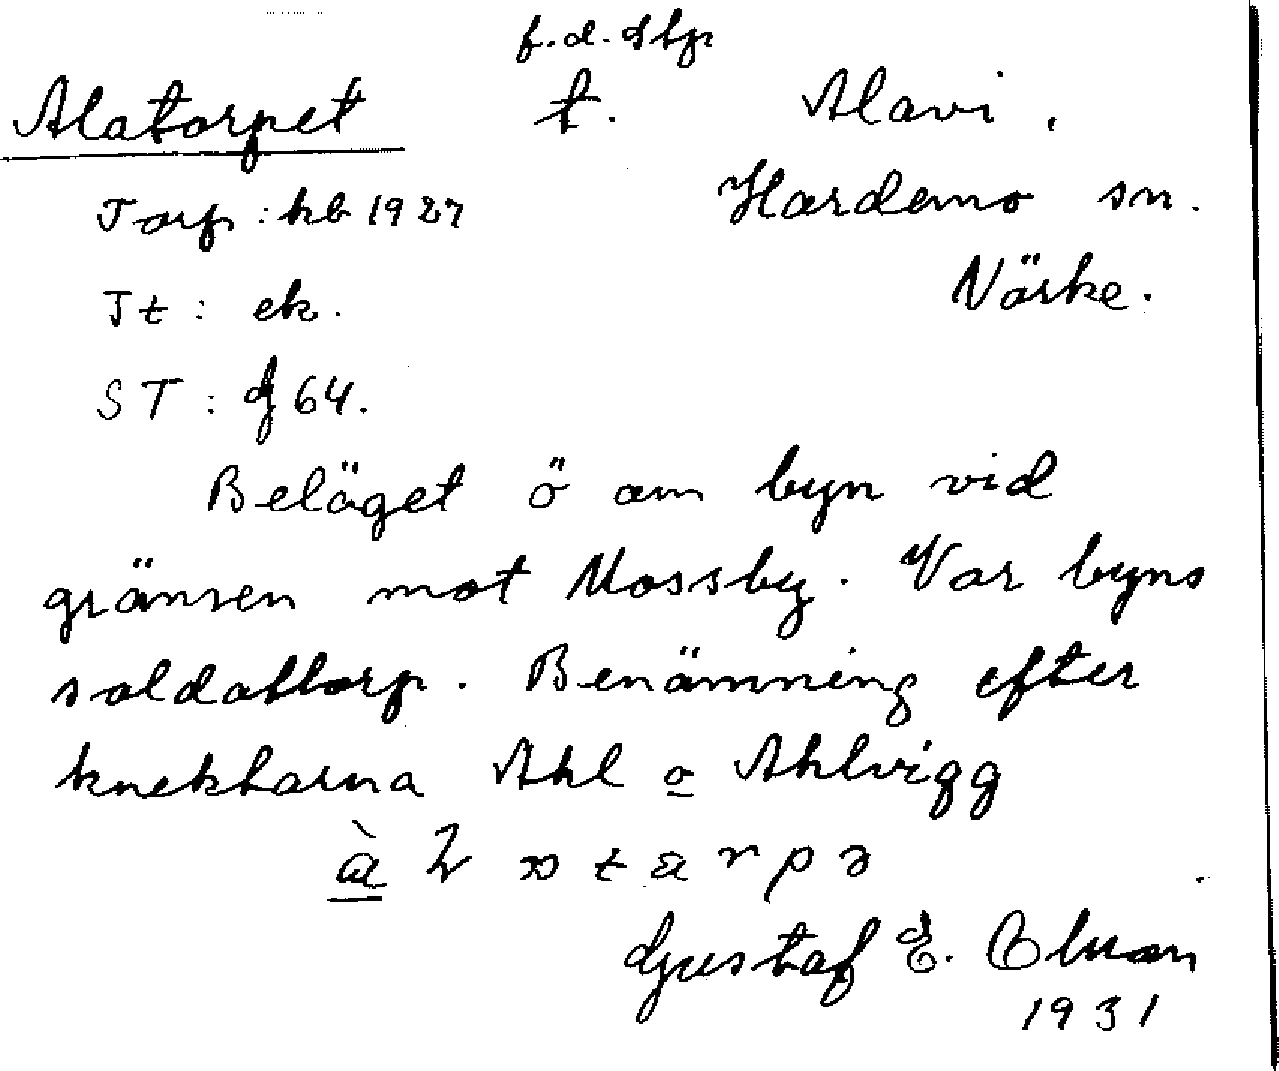 f.d. stp
Alatorpet t. Alavi.
Torp: kb 1927 Hardemo sn.
Jt: ek. Närke.
ST: g 64.
Beläget ö om byn vid
gränsen mot Mossby. Var byns
soldattorp. Benämning efter
knektarna Ahl o Ahlvigg
Gustaf E.
1931